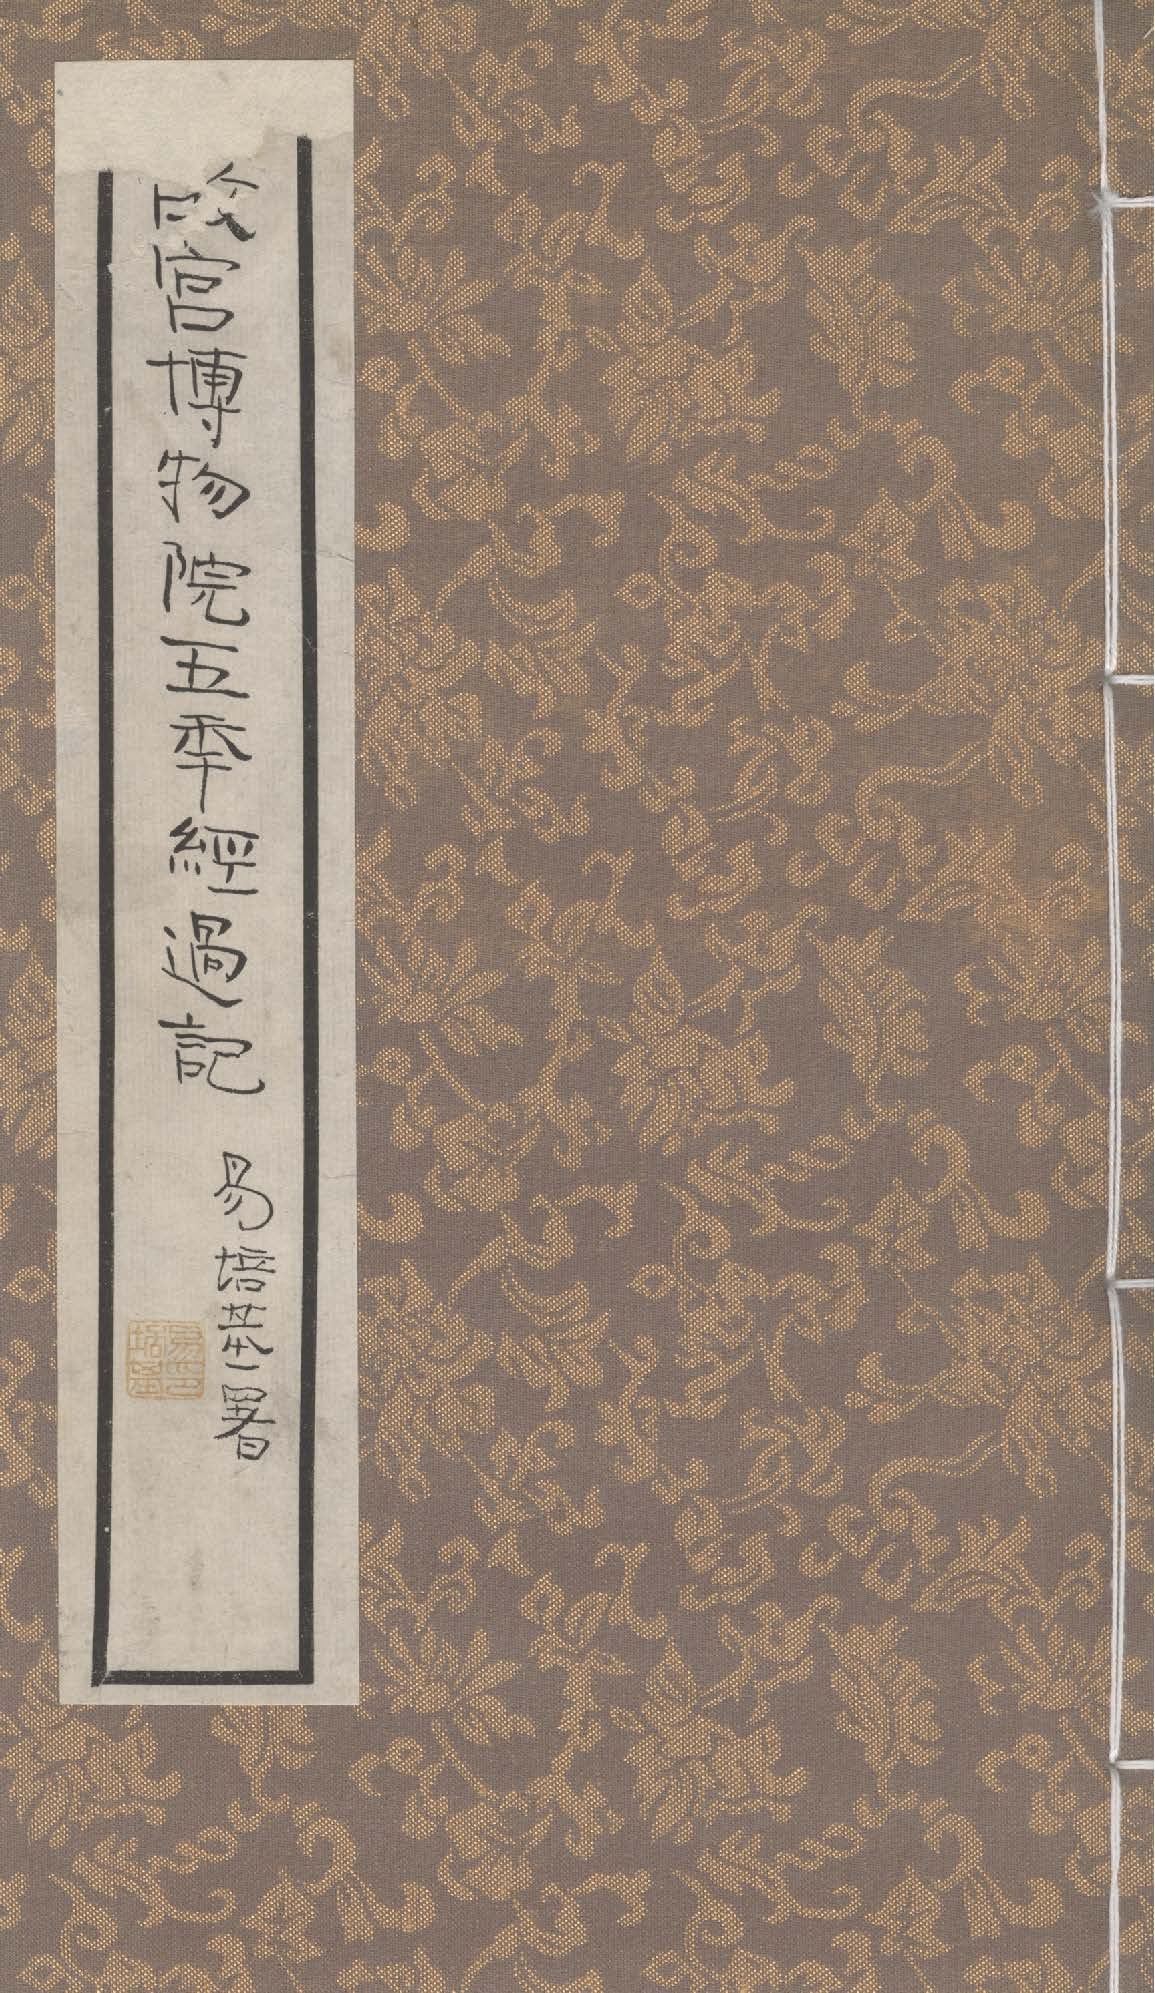 故宮博物院五年經過記
易培基署
易培基印